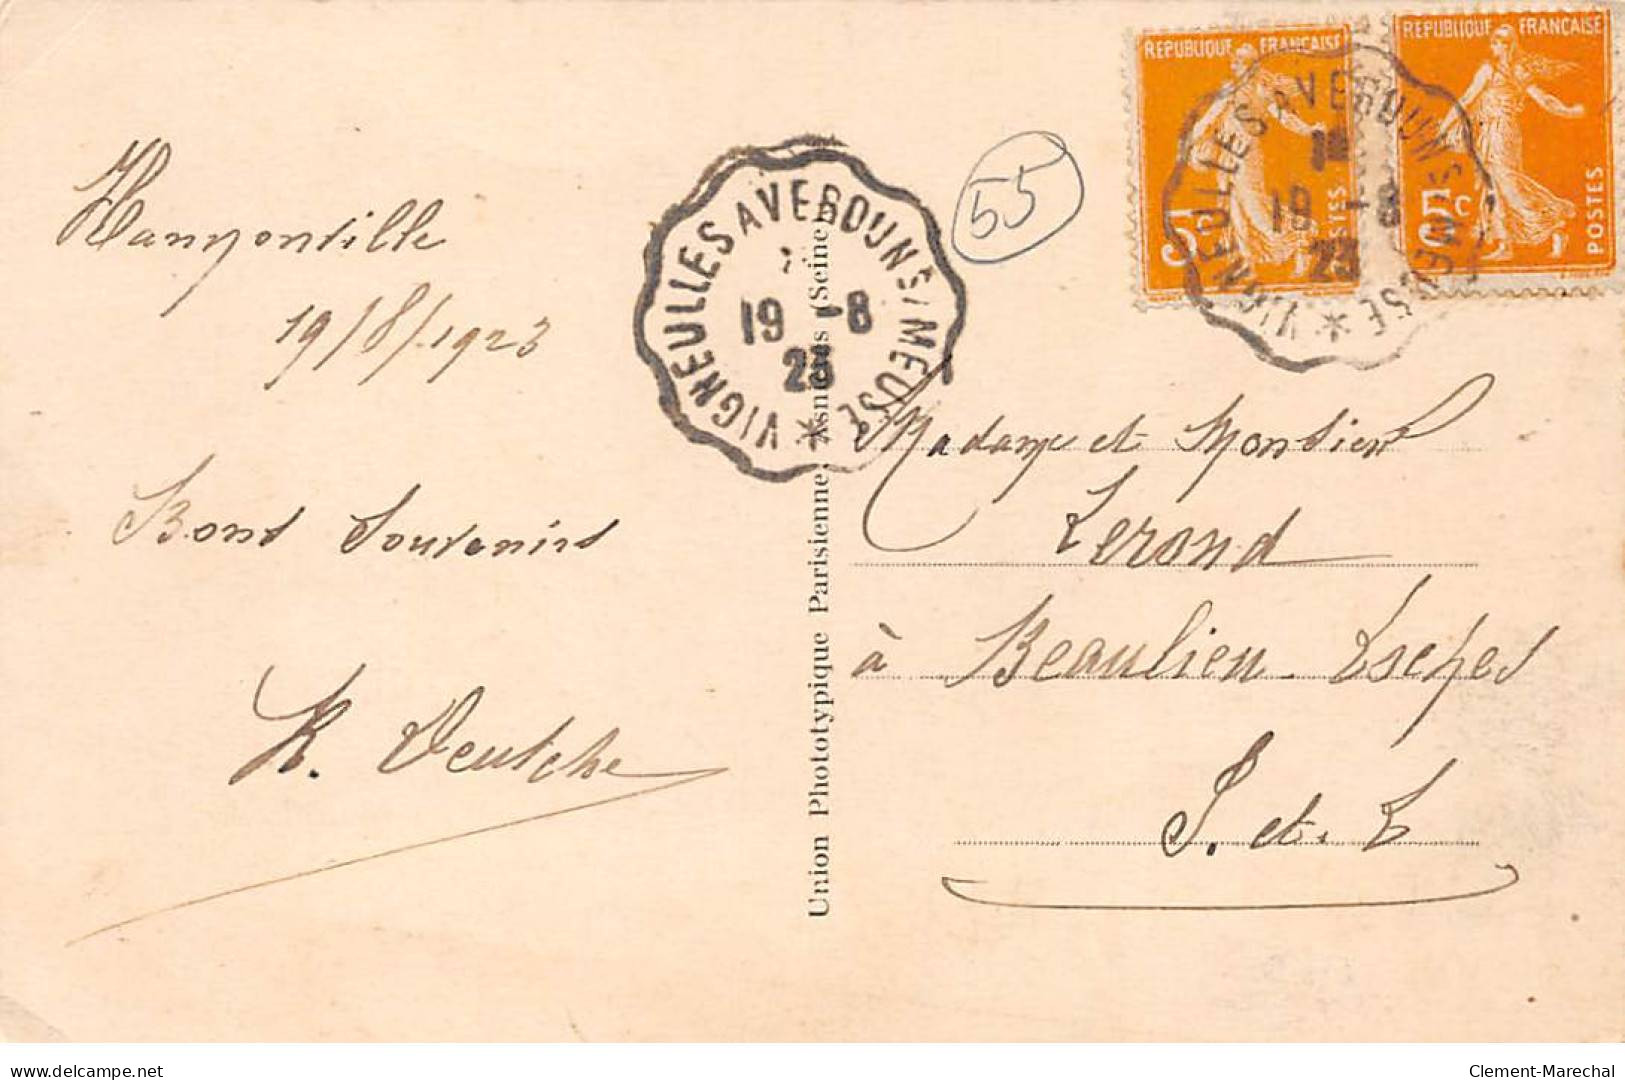 Hannonville
19/8/1923
Bons Souvenirs
R. Deutche
VIGNEULLES A VERDUN S/MEUSE
19 -8
23
Union Phototypique Parisienne, Asnières (Seine)
55
REPUBLIQUE FRANÇAISE
5c
POSTES
REPUBLIQUE FRANÇAISE
5c
POSTES
VIGNEULLES A VERDUN S/MEUSE
19 -8
23
Madame et Monsieur
Lerond
à Beaulieu-Essarts
S. et. L
delcampe.net
Clement-Marechal